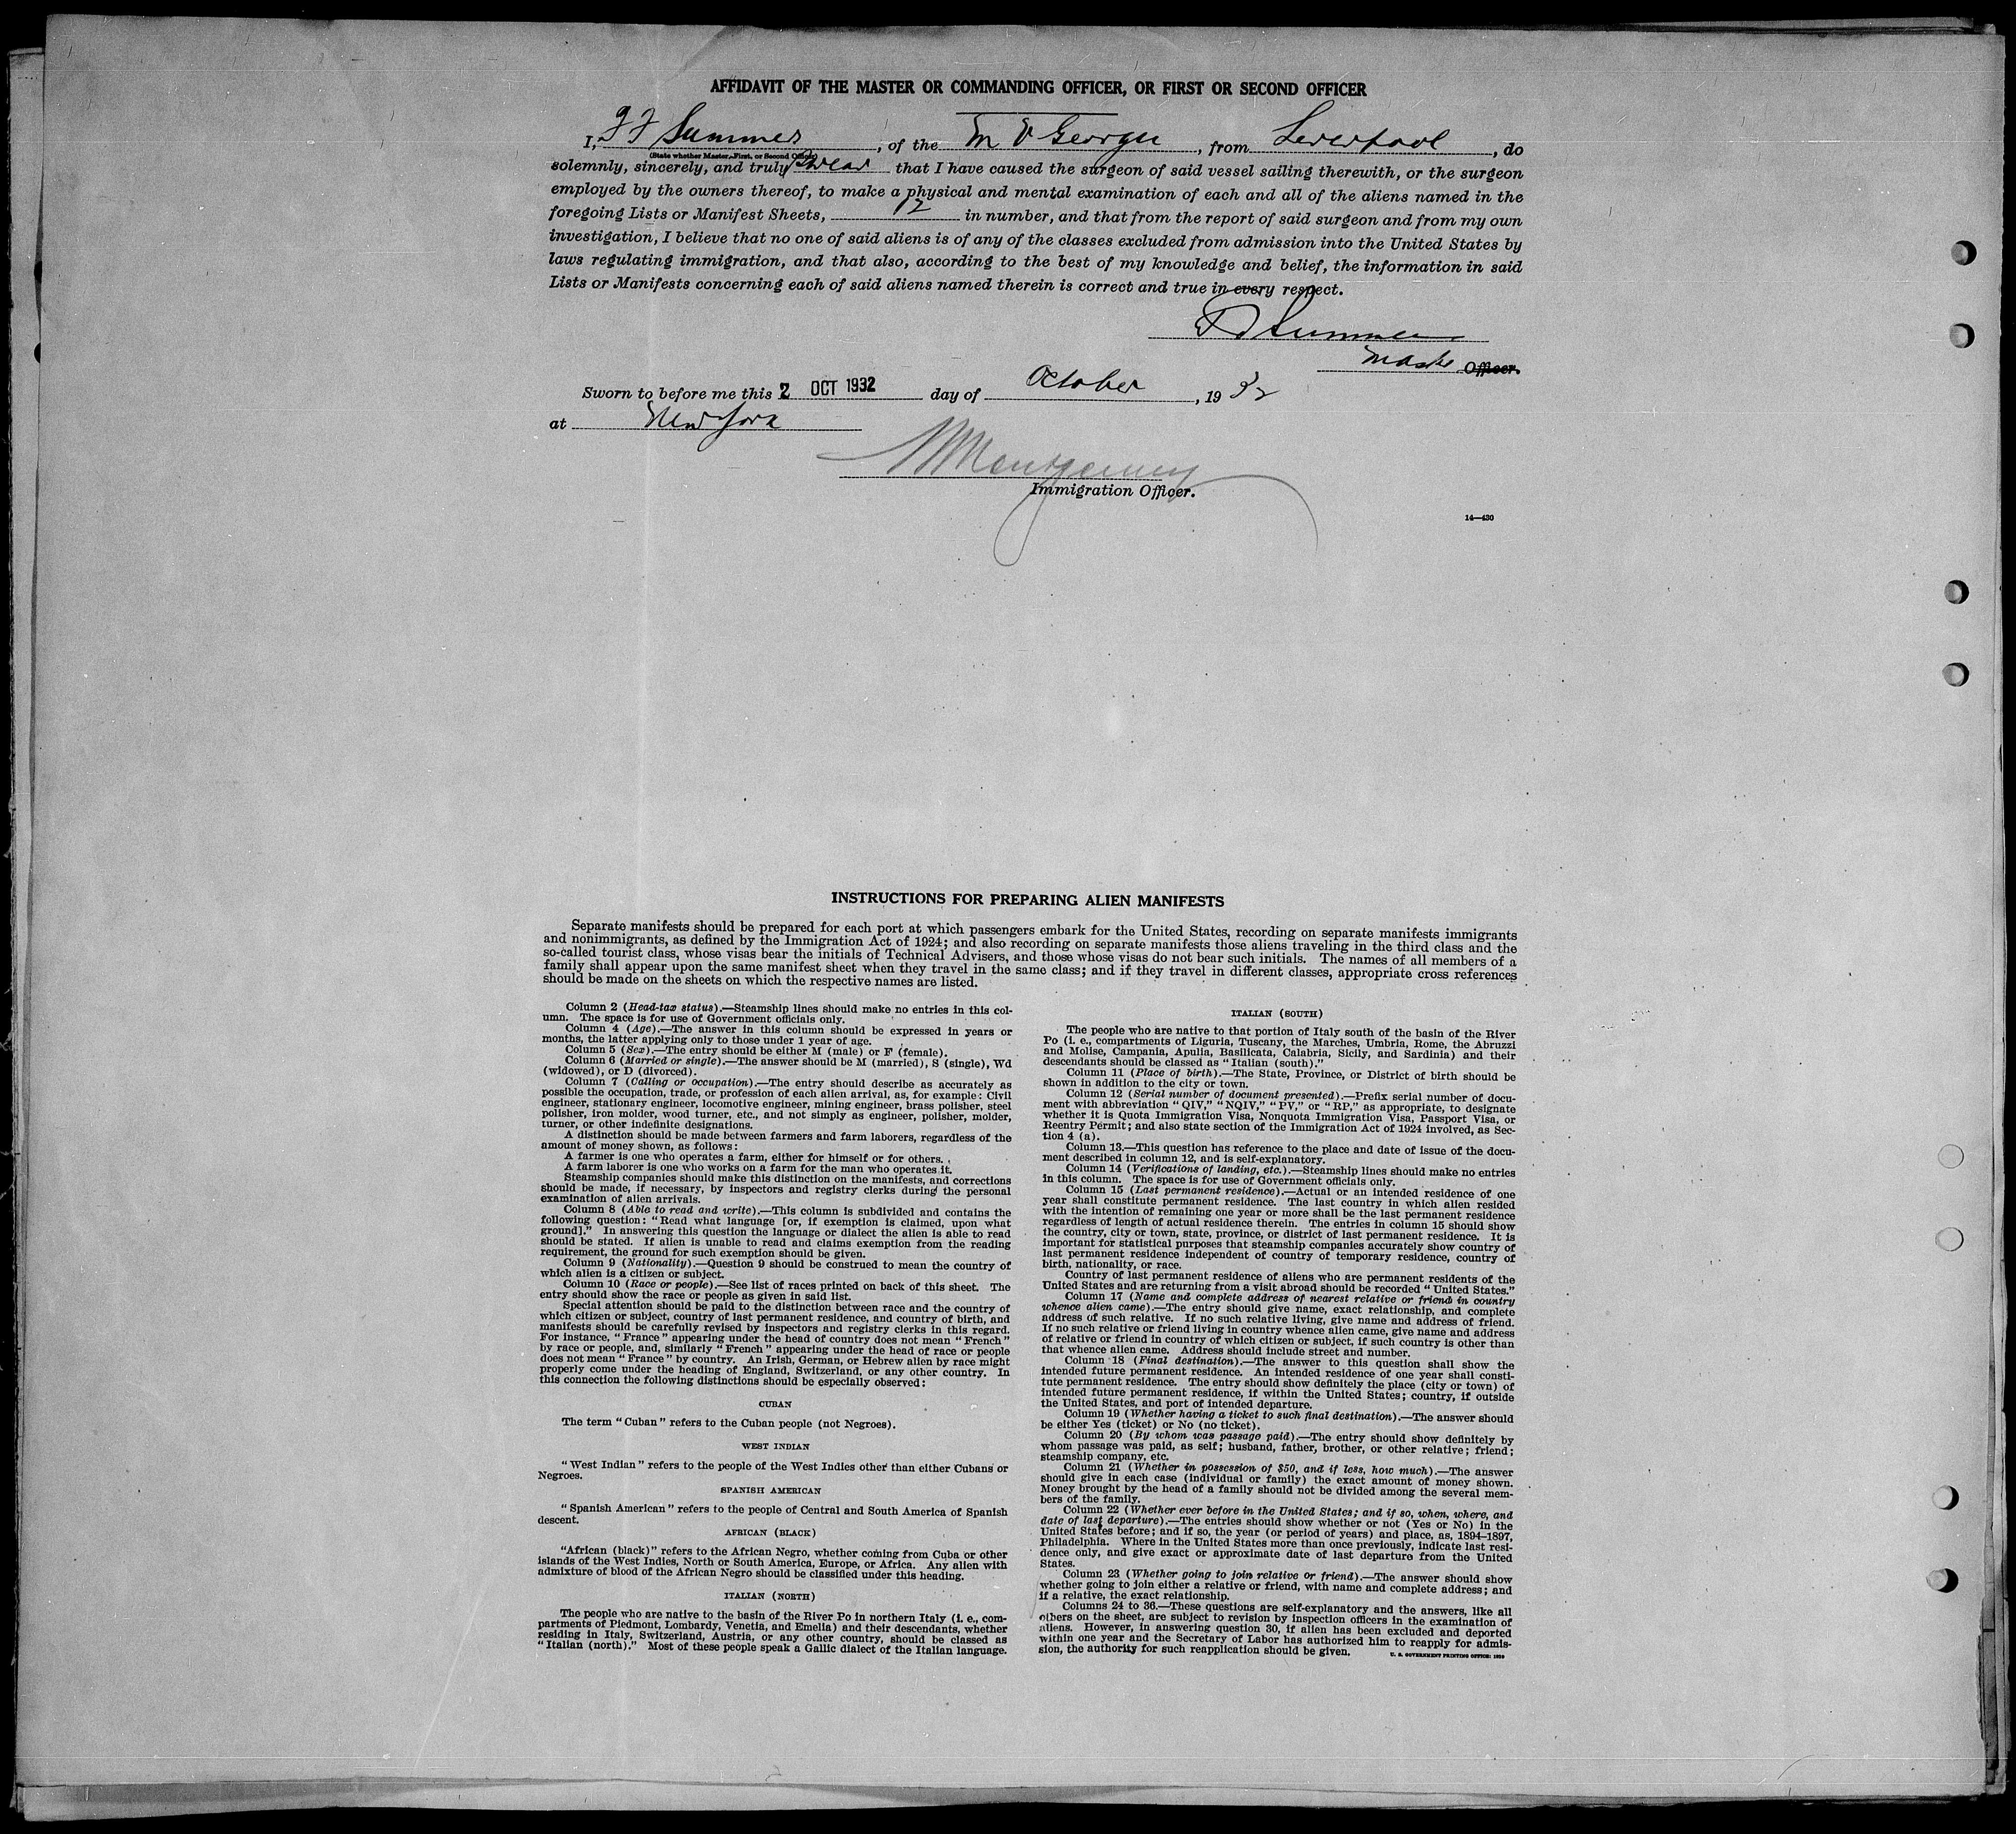 AFFIDAVIT OF THE MASTER OR COMMANDING OFFICER, OR FIRST OR SECOND OFFICER
I, F F Summers, of the M V Georgic, from Liverpool, do
(State whether Master, First, or Second Officer)
solemnly, sincerely, and truly Swear that I have caused the surgeon of said vessel sailing therewith, or the surgeon
employed by the owners thereof, to make a physical and mental examination of each and all of the aliens named in the
foregoing Lists or Manifest Sheets, 12 in number, and that from the report of said surgeon and from my own
investigation, I believe that no one of said aliens is of any of the classes excluded from admission into the United States by
laws regulating immigration, and that also, according to the best of my knowledge and belief, the information in said
Lists or Manifests concerning each of said aliens named therein is correct and true in every respect.
Summers
Master Officer.
Sworn to before me this 2 OCT 1932 day of October, 1932
at New York
Montgomery
Immigration Officer.
14—430
INSTRUCTIONS FOR PREPARING ALIEN MANIFESTS
Separate manifests should be prepared for each port at which passengers embark for the United States, recording on separate manifests immigrants
and nonimmigrants, as defined by the Immigration Act of 1924; and also recording on separate manifests those aliens traveling in the third class and the
so-called tourist class, whose visas bear the initials of Technical Advisers, and those whose visas do not bear such initials. The names of all members of a
family shall appear upon the same manifest sheet when they travel in the same class; and if they travel in different classes, appropriate cross references
should be made on the sheets on which the respective names are listed.
Column 2 (Head-tax status).—Steamship lines should make no entries in this col-
umn. The space is for use of Government officials only.
Column 4 (Age).—The answer in this column should be expressed in years or
months, the latter applying only to those under 1 year of age.
Column 5 (Sex).—The entry should be either M (male) or F (female).
Column 6 (Married or single).—The answer should be M (married), S (single), Wd
(widowed), or D (divorced).
Column 7 (Calling or occupation).—The entry should describe as accurately as
possible the occupation, trade, or profession of each alien arrival, as, for example: Civil
engineer, stationary engineer, locomotive engineer, mining engineer, brass polisher, steel
polisher, iron molder, wood turner, etc., and not simply as engineer, polisher, molder,
turner, or other indefinite designations.
A distinction should be made between farmers and farm laborers, regardless of the
amount of money shown, as follows:
A farmer is one who operates a farm, either for himself or for others.
A farm laborer is one who works on a farm for the man who operates it.
Steamship companies should make this distinction on the manifests, and corrections
should be made, if necessary, by inspectors and registry clerks during the personal
examination of alien arrivals.
Column 8 (Able to read and write).—This column is subdivided and contains the
following question: "Read what language [or, if exemption is claimed, upon what
ground]." In answering this question the language or dialect the alien is able to read
should be stated. If alien is unable to read and claims exemption from the reading
requirement, the ground for such exemption should be given.
Column 9 (Nationality).—Question 9 should be construed to mean the country of
which alien is a citizen or subject.
Column 10 (Race or people).—See list of races printed on back of this sheet. The
entry should show the race or people as given in said list.
Special attention should be paid to the distinction between race and the country of
which citizen or subject, country of last permanent residence, and country of birth, and
manifests should be carefully revised by inspectors and registry clerks in this regard.
For instance, "France" appearing under the head of country does not mean "French"
by race or people, and, similarly "French" appearing under the head of race or people
does not mean "France" by country. An Irish, German, or Hebrew alien by race might
properly come under the heading of England, Switzerland, or any other country. In
this connection the following distinctions should be especially observed:
CUBAN
The term "Cuban" refers to the Cuban people (not Negroes).
WEST INDIAN
"West Indian" refers to the people of the West Indies other than either Cubans or
Negroes.
SPANISH AMERICAN
"Spanish American" refers to the people of Central and South America of Spanish
descent.
AFRICAN (BLACK)
"African (black)" refers to the African Negro, whether coming from Cuba or other
islands of the West Indies, North or South America, Europe, or Africa. Any alien with
admixture of blood of the African Negro should be classified under this heading.
ITALIAN (NORTH)
The people who are native to the basin of the River Po in northern Italy (i. e., com-
partments of Piedmont, Lombardy, Venetia, and Emelia) and their descendants, whether
residing in Italy, Switzerland, Austria, or any other country, should be classed as
"Italian (north)." Most of these people speak a Gallic dialect of the Italian language.
ITALIAN (SOUTH)
The people who are native to that portion of Italy south of the basin of the River
Po (i. e., compartments of Liguria, Tuscany, the Marches, Umbria, Rome, the Abruzzi
and Molise, Campania, Apulia, Basilicata, Calabria, Sicily, and Sardinia) and their
descendants should be classed as "Italian (south)."
Column 11 (Place of birth).—The State, Province, or District of birth should be
shown in addition to the city or town.
Column 12 (Serial number of document presented).—Prefix serial number of docu-
ment with abbreviation "QIV," "NQIV," "PV," or "RP," as appropriate, to designate
whether it is Quota Immigration Visa, Nonquota Immigration Visa, Passport Visa, or
Reentry Permit; and also state section of the Immigration Act of 1924 involved, as Sec-
tion 4 (a).
Column 13.—This question has reference to the place and date of issue of the docu-
ment described in column 12, and is self-explanatory.
Column 14 (Verifications of landing, etc.).—Steamship lines should make no entries
in this column. The space is for use of Government officials only.
Column 15 (Last permanent residence).—Actual or an intended residence of one
year shall constitute permanent residence. The last country in which alien resided
with the intention of remaining one year or more shall be the last permanent residence
regardless of length of actual residence therein. The entries in column 15 should show
the country, city or town, state, province, or district of last permanent residence. It is
important for statistical purposes that steamship companies accurately show country of
last permanent residence independent of country of temporary residence, country of
birth, nationality, or race.
Country of last permanent residence of aliens who are permanent residents of the
United States and are returning from a visit abroad should be recorded "United States."
Column 17 (Name and complete address of nearest relative or friend in country
whence alien came).—The entry should give name, exact relationship, and complete
address of such relative. If no such relative living, give name and address of friend.
If no such relative or friend living in country whence alien came, give name and address
of relative or friend in country of which citizen or subject, if such country is other than
that whence alien came. Address should include street and number.
Column 18 (Final destination).—The answer to this question shall show the
intended future permanent residence. An intended residence of one year shall consti-
tute permanent residence. The entry should show definitely the place (city or town) of
intended future permanent residence, if within the United States; country, if outside
the United States, and port of intended departure.
Column 19 (Whether having a ticket to such final destination).—The answer should
be either Yes (ticket) or No (no ticket).
Column 20 (By whom was passage paid).—The entry should show definitely by
whom passage was paid, as self; husband, father, brother, or other relative; friend;
steamship company, etc.
Column 21 (Whether in possession of $50, and if less, how much).—The answer
should give in each case (individual or family) the exact amount of money shown.
Money brought by the head of a family should not be divided among the several mem-
bers of the family.
Column 22 (Whether ever before in the United States; and if so, when, where, and
date of last departure).—The entries should show whether or not (Yes or No) in the
United States before; and if so, the year (or period of years) and place, as, 1894–1897,
Philadelphia. Where in the United States more than once previously, indicate last resi-
dence only, and give exact or approximate date of last departure from the United
States.
Column 23 (Whether going to join relative or friend).—The answer should show
whether going to join either a relative or friend, with name and complete address; and
if a relative, the exact relationship.
Columns 24 to 36.—These questions are self-explanatory and the answers, like all
others on the sheet, are subject to revision by inspection officers in the examination of
aliens. However, in answering question 30, if alien has been excluded and deported
within one year and the Secretary of Labor has authorized him to reapply for admis-
sion, the authority for such reapplication should be given.
U. S. GOVERNMENT PRINTING OFFICE: